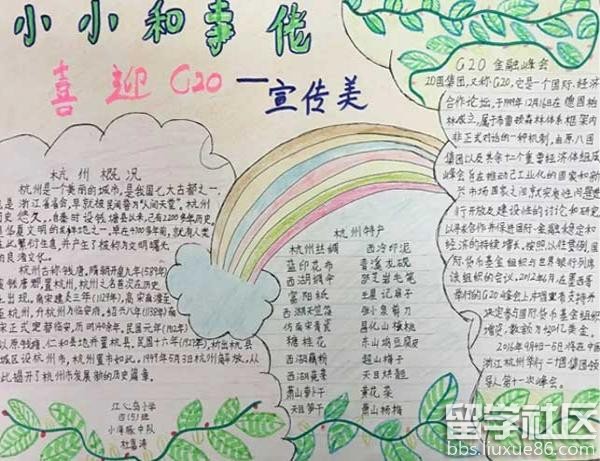 小小和事佬
喜迎G20—宣传美
杭州概况
杭州是一个美丽的城市,是我国七大古都之一,
也是浙江省省会,早就被民间誉为"人间天堂"。杭州
历史悠久,自秦时设钱塘县以来,已有2200多年历史,
是华夏文明的发祥地之一,早在4700多年前,就有人类
在此繁衍生息,并产生了被称为文明曙光
的良渚文化。
杭州古称钱唐,隋朝开皇九年(589年)
废钱唐郡,置杭州,杭州之名首次在历史
出现。南宋建炎三年(1129年),高宗南渡至
杭州,升杭州为临安府,绍兴八年(1138年)南
宋正式定都临安,历时140余年。民国元年(1912年)
以原钱塘、仁和县地并置杭县,民国十六年(1927年)析出杭县
城区设杭州市,杭州置市始此。1949年5月3日杭州解放,从
此揭开了杭州市发展新的历史篇章。
江心岛小学
四(5)班
小海豚中队
杭州特产
杭州丝绸 西泠印泥
蓝印花布 鸡血石
西湖绸伞 邵芝岩毛笔
富阳纸 王星记扇子
西湖天竺筷 张小泉剪刀
仿南宋官瓷 昌化山核桃
糖桂花 东山坞豆腐皮
西湖藕粉 超山梅子
西湖莼菜 天目烘靛
萧山萝卜干 黄花菜
天目笋干 萧山杨梅
G20金融峰会
20国集团,又称G20,它是一个国际经济
合作论坛,于1999年12月16日在德国柏
林成立,属于布雷顿森林体系框架内
非正式对话的一种机制,由原八国
集团以及其余十二个重要经济体组成。
峰会旨在推动已工业化的国家和新
兴市场国家之间就实质性问题进
行开放及建设性的讨论和研究,
以寻求合作并促进国际金融稳定和
经济的持续增长,按照以往惯例,国
际货币基金组织与世界银行列席
该组织的会议。2012年6月在墨西哥
举行的G20峰会上,中国宣布支持并
决定参与国际货币基金组织
增资,数额为430亿美金。
2016年9月4-5日将在中国
浙江杭州举行二十国集团领
导人第十一次峰会。
留学社区
bbs.liuxue86.com